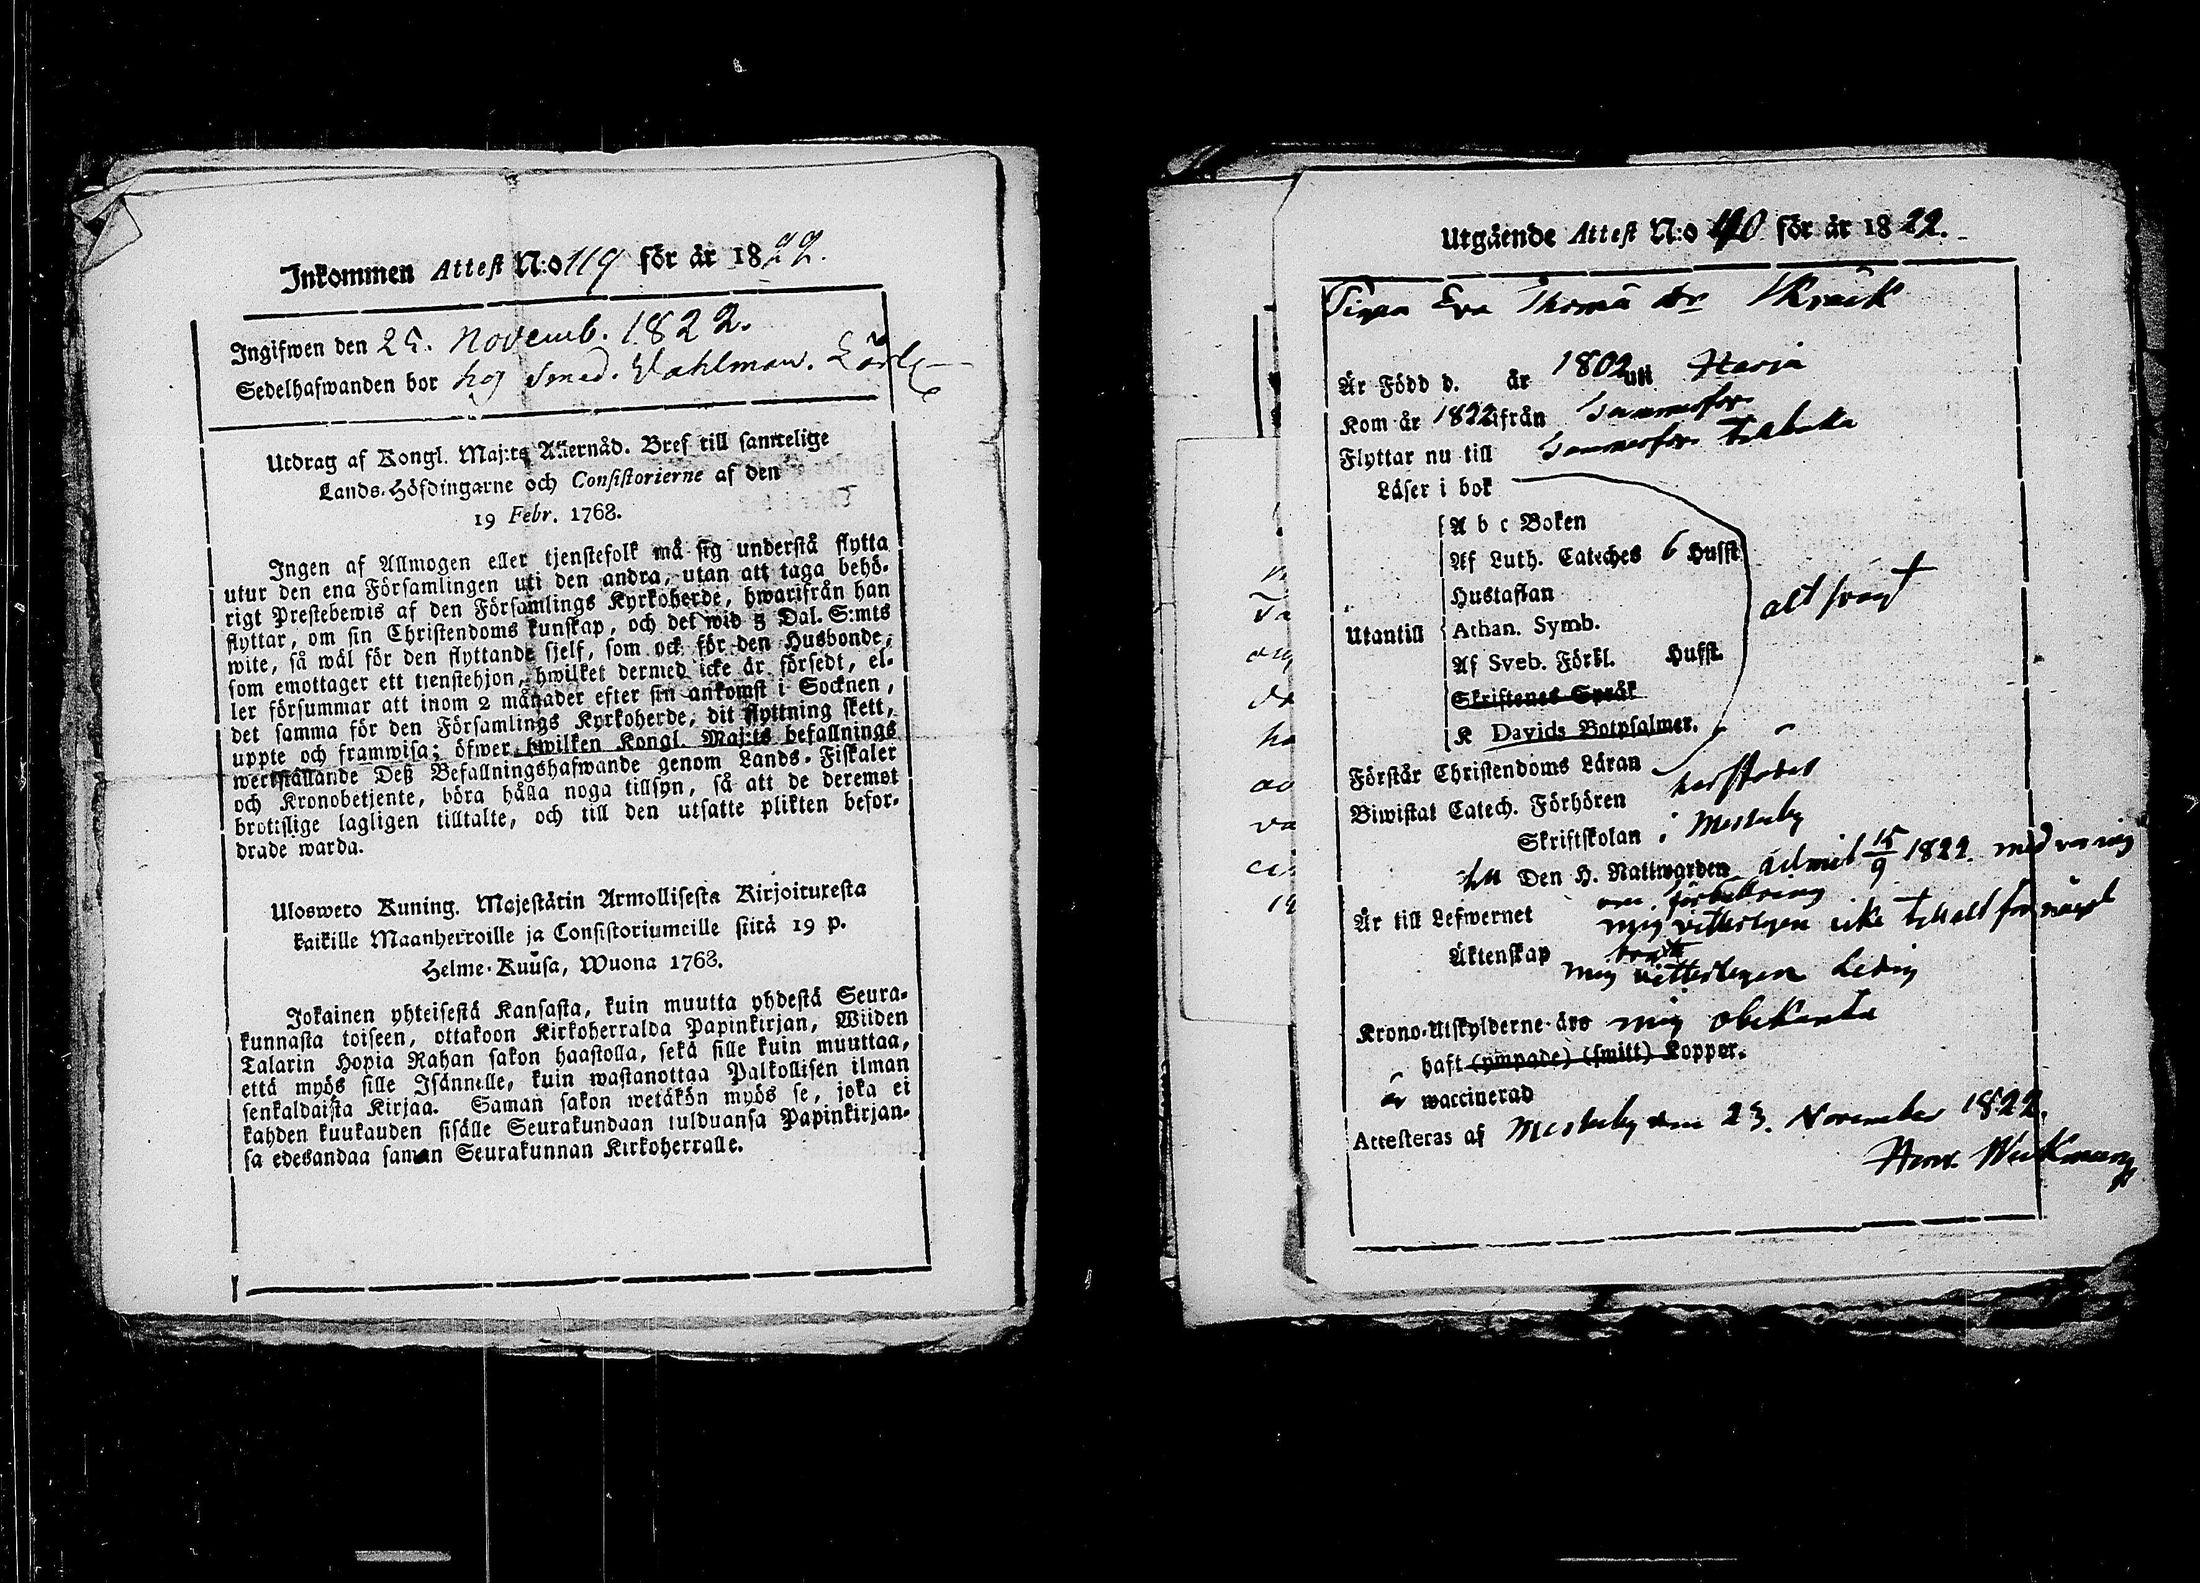 Inkommen Attest N:o 119 för år 1822.
Ingifwen den 25. Novemb. 1822.
Sedelhafwanden bor hos Smed. Wahlman.
Utdrag af Kongl. Maj:ts Allernåd. Bref till samtelige
Lands-Höfdingarne och Consistorierne af den
19 Febr. 1768.
Ingen af Allmogen eller tjenstefolk må sig understå flytta
utur den ena Församlingen uti den andra, utan att taga behö-
rigt Prestebewis af den Församlings Kyrkoherde, hwarifrån han
flyttar, om sin Christendoms kunskap, och det wid 5 Dal. S:mts
wite, så wäl för den flyttande sjelf, som ock för den Husbonde,
som emottager ett tjenstehjon, hwilket dermed icke är försedt, el-
ler försummar att inom 2 månader efter sin ankomst i Socknen,
det samma för den Församlings Kyrkoherde, dit flyttning skett,
uppte och framwisa; öfwer hwilken Kongl. Maj:ts befallnings
werkställande Deß Befallningshafwande genom Lands-Fiskaler
och Kronobetjente, böra hålla noga tillsyn, så att de deremot
brottslige lagligen tilltalte, och till den utsatte plikten befor-
drade warda.
Ulosweto Kuning. Majestätin Armollisesta Kirjoituxesta
kaikille Maanherroille ja Consistoriumeille siitä 19 p.
Helme-Kuusa, Wuona 1768.
Jokainen yhteisestä Kansasta, kuin muutta yhdestä Seura-
kunnasta toiseen, ottakoon Kirkoherralda Papinkirjan, Wiiden
Talarin Hopia Rahan sakon haastolla, sekä sille kuin muuttaa,
että myös sille Isännelle, kuin wastanottaa Palkollisen ilman
senkaldaista Kirjaa. Saman sakon wetäkön myös se, joka ei
kahden kuukauden sisälle Seurakundaan tulduansa Papinkirjan-
sa edesandaa saman Seurakunnan Kirkoherralle.
Utgående Attest N:o för år 1822.
Pigan Eva Thomä dr
Är Född d. år 1802 uti Harja
Kom år 1822 ifrån Gammelfor
Flyttar nu till Gammelfor tillbaka
Läser i bok
A b c Boken
Af Luth. Cateches 6 Hufst.
Hustaflan
Utantill Athan. Symb.
Af Sveb. Förkl. Hufst.
Skriftenes Språk
K Davids Botpsalmer.
alt svagt
Förstår Christendoms Läran
Biwistat Catech. Förhören härstädes
Skriftskolan i Mesterby
till Den H. Nattwarden admit 15/9 1822. med varning
om förbättring
Är till Lefwernet mig vitterligen icke tilltalt för något
brott
Äktenskap mig vitterligen Ledig
Krono-Utskylderne äro mig obekanta
haft (ympade) (smitt) Koppor.
är waccinerad
Attesteras af Mesterby den 23. November 1822.
Henr. Wickman